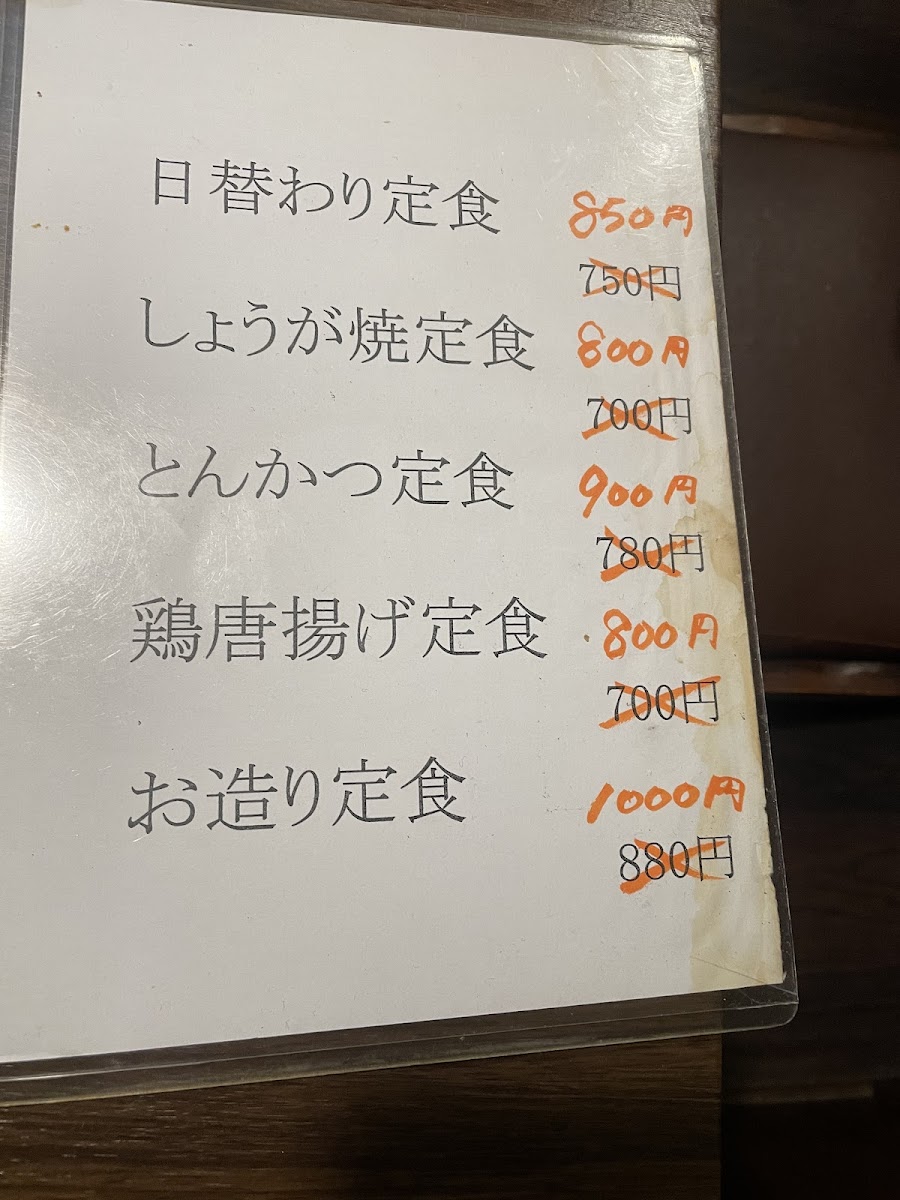 日替わり定食 850円
750円
しょうが焼定食 800円
700円
とんかつ定食 900円
780円
鶏唐揚げ定食 800円
700円
お造り定食 1000円
880円